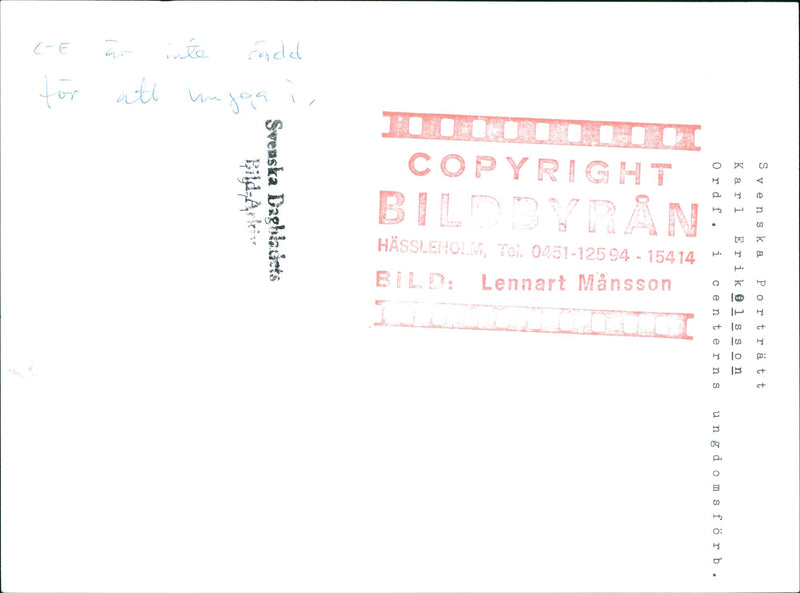 C-E är inte rädd
för att
Svenska Dagbladets
Bild-Arkiv
COPYRIGHT
BILDBYRÅN
HÄSSLEHOLM, Tel. 0451-12594 - 15414
BILD: Lennart Månsson
Svenska Porträtt
Karl Erik Olsson
Ordf. i centerns ungdomsförb.